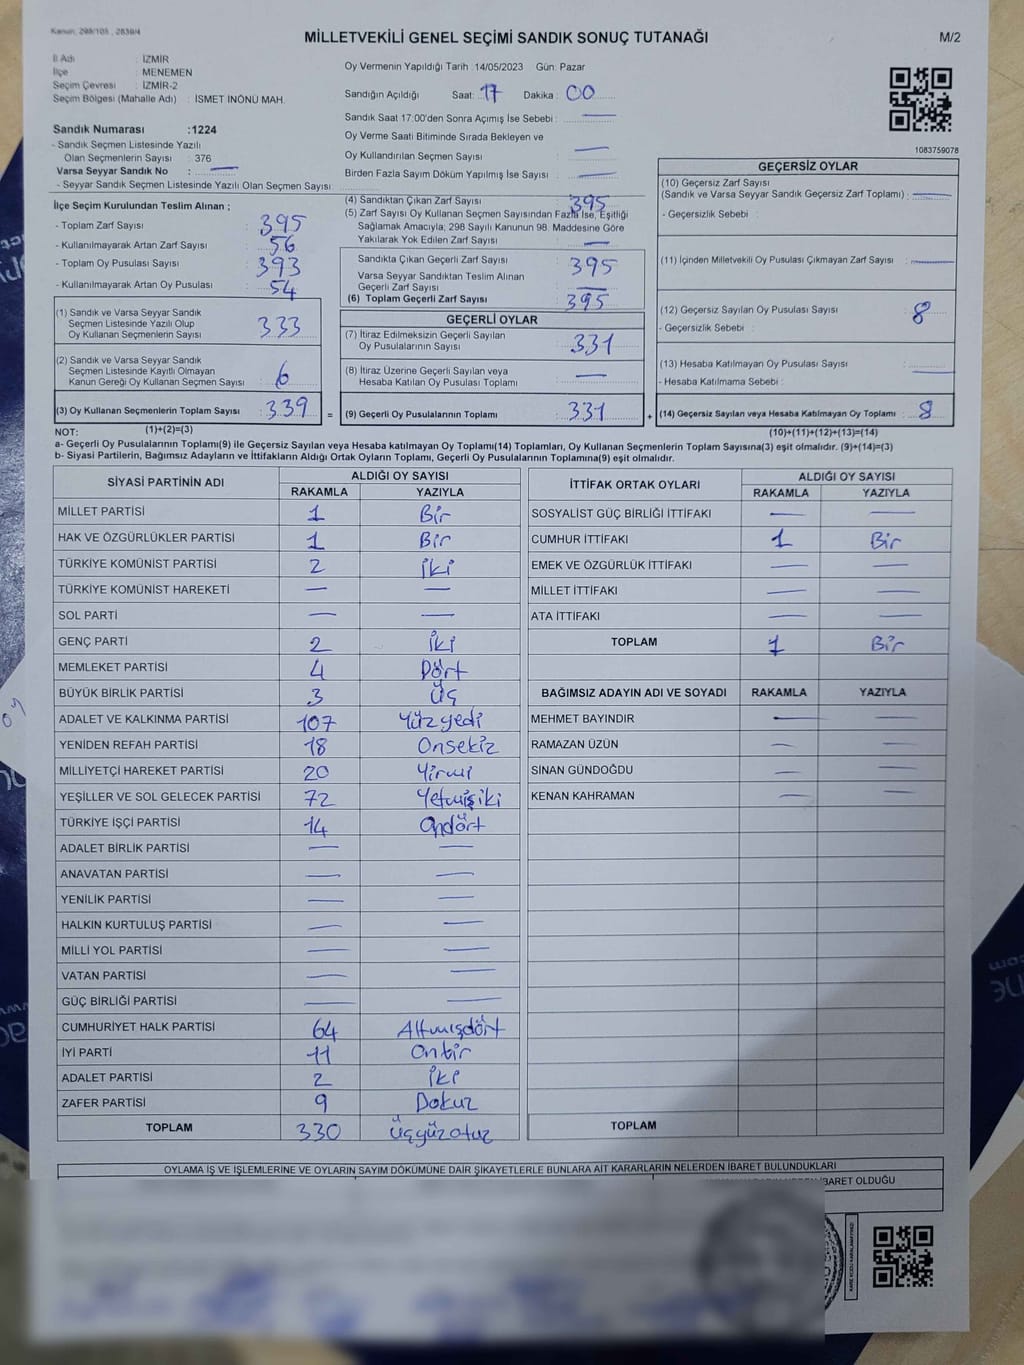 Kanun, 298/105 , 2839/4
MİLLETVEKİLİ GENEL SEÇİMİ SANDIK SONUÇ TUTANAĞI
M/2
İl Adı : İZMİR
İlçe : MENEMEN
Seçim Çevresi : İZMİR-2
Seçim Bölgesi (Mahalle Adı) : İSMET İNÖNÜ MAH.
Sandık Numarası :1224
- Sandık Seçmen Listesinde Yazılı
Olan Seçmenlerin Sayısı : 376
Varsa Seyyar Sandık No : —
- Seyyar Sandık Seçmen Listesinde Yazılı Olan Seçmen Sayısı :
Oy Vermenin Yapıldığı Tarih :14/05/2023 Gün: Pazar
Sandığın Açıldığı Saat: 17 Dakika : 00
Sandık Saat 17:00'den Sonra Açımış İse Sebebi : —
Oy Verme Saati Bitiminde Sırada Bekleyen ve
Oy Kullandırılan Seçmen Sayısı —
Birden Fazla Sayım Döküm Yapılmış İse Sayısı : —
1083759078
İlçe Seçim Kurulundan Teslim Alınan ;
- Toplam Zarf Sayısı : 395
- Kullanılmayarak Artan Zarf Sayısı : 56
- Toplam Oy Pusulası Sayısı : 393
- Kullanılmayarak Artan Oy Pusulası : 54
(1) Sandık ve Varsa Seyyar Sandık
Seçmen Listesinde Yazılı Olup
Oy Kullanan Seçmenlerin Sayısı : 333
(2) Sandık ve Varsa Seyyar Sandık
Seçmen Listesinde Kayıtlı Olmayan
Kanun Gereği Oy Kullanan Seçmen Sayısı : 6
(3) Oy Kullanan Seçmenlerin Toplam Sayısı : 339
(1)+(2)=(3)
(4) Sandıktan Çıkan Zarf Sayısı : 395
(5) Zarf Sayısı Oy Kullanan Seçmen Sayısından Fazla İse, Eşitliği
Sağlamak Amacıyla; 298 Sayılı Kanunun 98. Maddesine Göre
Yakılarak Yok Edilen Zarf Sayısı : —
Sandıkta Çıkan Geçerli Zarf Sayısı : 395
Varsa Seyyar Sandıktan Teslim Alınan
Geçerli Zarf Sayısı : —
(6) Toplam Geçerli Zarf Sayısı : 395
GEÇERLİ OYLAR
(7) İtiraz Edilmeksizin Geçerli Sayılan
Oy Pusulalarının Sayısı : 331
(8) İtiraz Üzerine Geçerli Sayılan veya
Hesaba Katılan Oy Pusulası Toplamı : —
= (9) Geçerli Oy Pusulalarının Toplamı : 331
GEÇERSİZ OYLAR
(10) Geçersiz Zarf Sayısı
(Sandık ve Varsa Seyyar Sandık Geçersiz Zarf Toplamı) : —
- Geçersizlik Sebebi :
(11) İçinden Milletvekili Oy Pusulası Çıkmayan Zarf Sayısı : —
(12) Geçersiz Sayılan Oy Pusulası Sayısı : 8
- Geçersizlik Sebebi :
(13) Hesaba Katılmayan Oy Pusulası Sayısı : —
- Hesaba Katılmama Sebebi :
+ (14) Geçersiz Sayılan veya Hesaba Katılmayan Oy Toplamı : 8
(10)+(11)+(12)+(13)=(14)
NOT:
a- Geçerli Oy Pusulalarının Toplamı(9) ile Geçersiz Sayılan veya Hesaba katılmayan Oy Toplamı(14) Toplamları, Oy Kullanan Seçmenlerin Toplam Sayısına(3) eşit olmalıdır. (9)+(14)=(3)
b- Siyasi Partilerin, Bağımsız Adayların ve İttifakların Aldığı Ortak Oyların Toplamı, Geçerli Oy Pusulalarının Toplamına(9) eşit olmalıdır.
SİYASİ PARTİNİN ADI ALDIĞI OY SAYISI
RAKAMLA YAZIYLA
MİLLET PARTİSİ 1 Bir
HAK VE ÖZGÜRLÜKLER PARTİSİ 1 Bir
TÜRKİYE KOMÜNİST PARTİSİ 2 İki
TÜRKİYE KOMÜNİST HAREKETİ — —
SOL PARTİ — —
GENÇ PARTİ 2 İki
MEMLEKET PARTİSİ 4 Dört
BÜYÜK BİRLİK PARTİSİ 3 Üç
ADALET VE KALKINMA PARTİSİ 107 Yüzyedi
YENİDEN REFAH PARTİSİ 18 Onsekiz
MİLLİYETÇİ HAREKET PARTİSİ 20 Yirmi
YEŞİLLER VE SOL GELECEK PARTİSİ 72 Yetmişiki
TÜRKİYE İŞÇİ PARTİSİ 14 Ondört
ADALET BİRLİK PARTİSİ — —
ANAVATAN PARTİSİ — —
YENİLİK PARTİSİ — —
HALKIN KURTULUŞ PARTİSİ — —
MİLLİ YOL PARTİSİ — —
VATAN PARTİSİ — —
GÜÇ BİRLİĞİ PARTİSİ — —
CUMHURİYET HALK PARTİSİ 64 Altmışdört
İYİ PARTİ 11 Onbir
ADALET PARTİSİ 2 İki
ZAFER PARTİSİ 9 Dokuz
TOPLAM 330 Üçyüzotuz
İTTİFAK ORTAK OYLARI ALDIĞI OY SAYISI
RAKAMLA YAZIYLA
SOSYALİST GÜÇ BİRLİĞİ İTTİFAKI — —
CUMHUR İTTİFAKI 1 Bir
EMEK VE ÖZGÜRLÜK İTTİFAKI — —
MİLLET İTTİFAKI — —
ATA İTTİFAKI — —
TOPLAM 1 Bir
BAĞIMSIZ ADAYIN ADI VE SOYADI RAKAMLA YAZIYLA
MEHMET BAYINDIR — —
RAMAZAN ÜZÜN — —
SİNAN GÜNDOĞDU — —
KENAN KAHRAMAN — —
TOPLAM
OYLAMA İŞ VE İŞLEMLERİNE VE OYLARIN SAYIM DÖKÜMÜNE DAİR ŞİKAYETLERLE BUNLARA AİT KARARLARIN NELERDEN İBARET BULUNDUKLARI
İBARET OLDUĞU